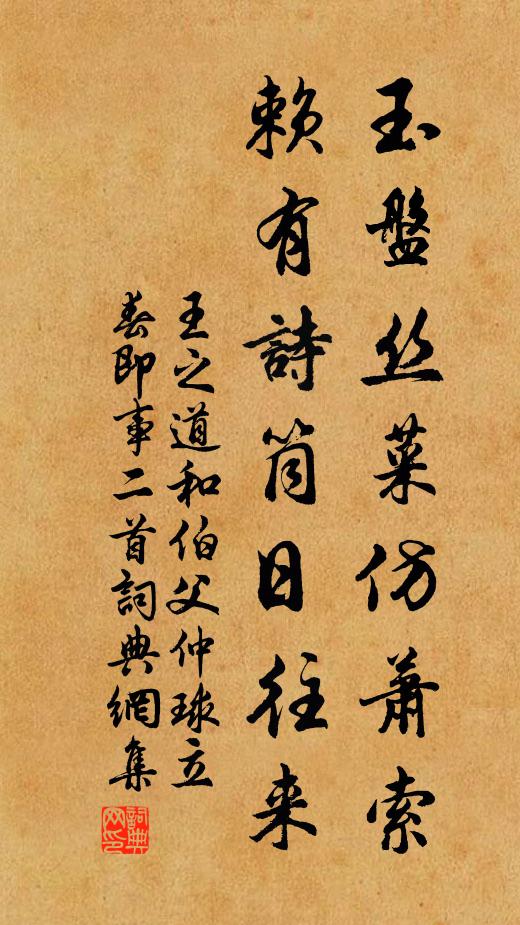 玉盤丝菜仿蕭索
賴有詩筒日往来
王之道和伯父仲球立
春即事二首詞典網集
詞典网印